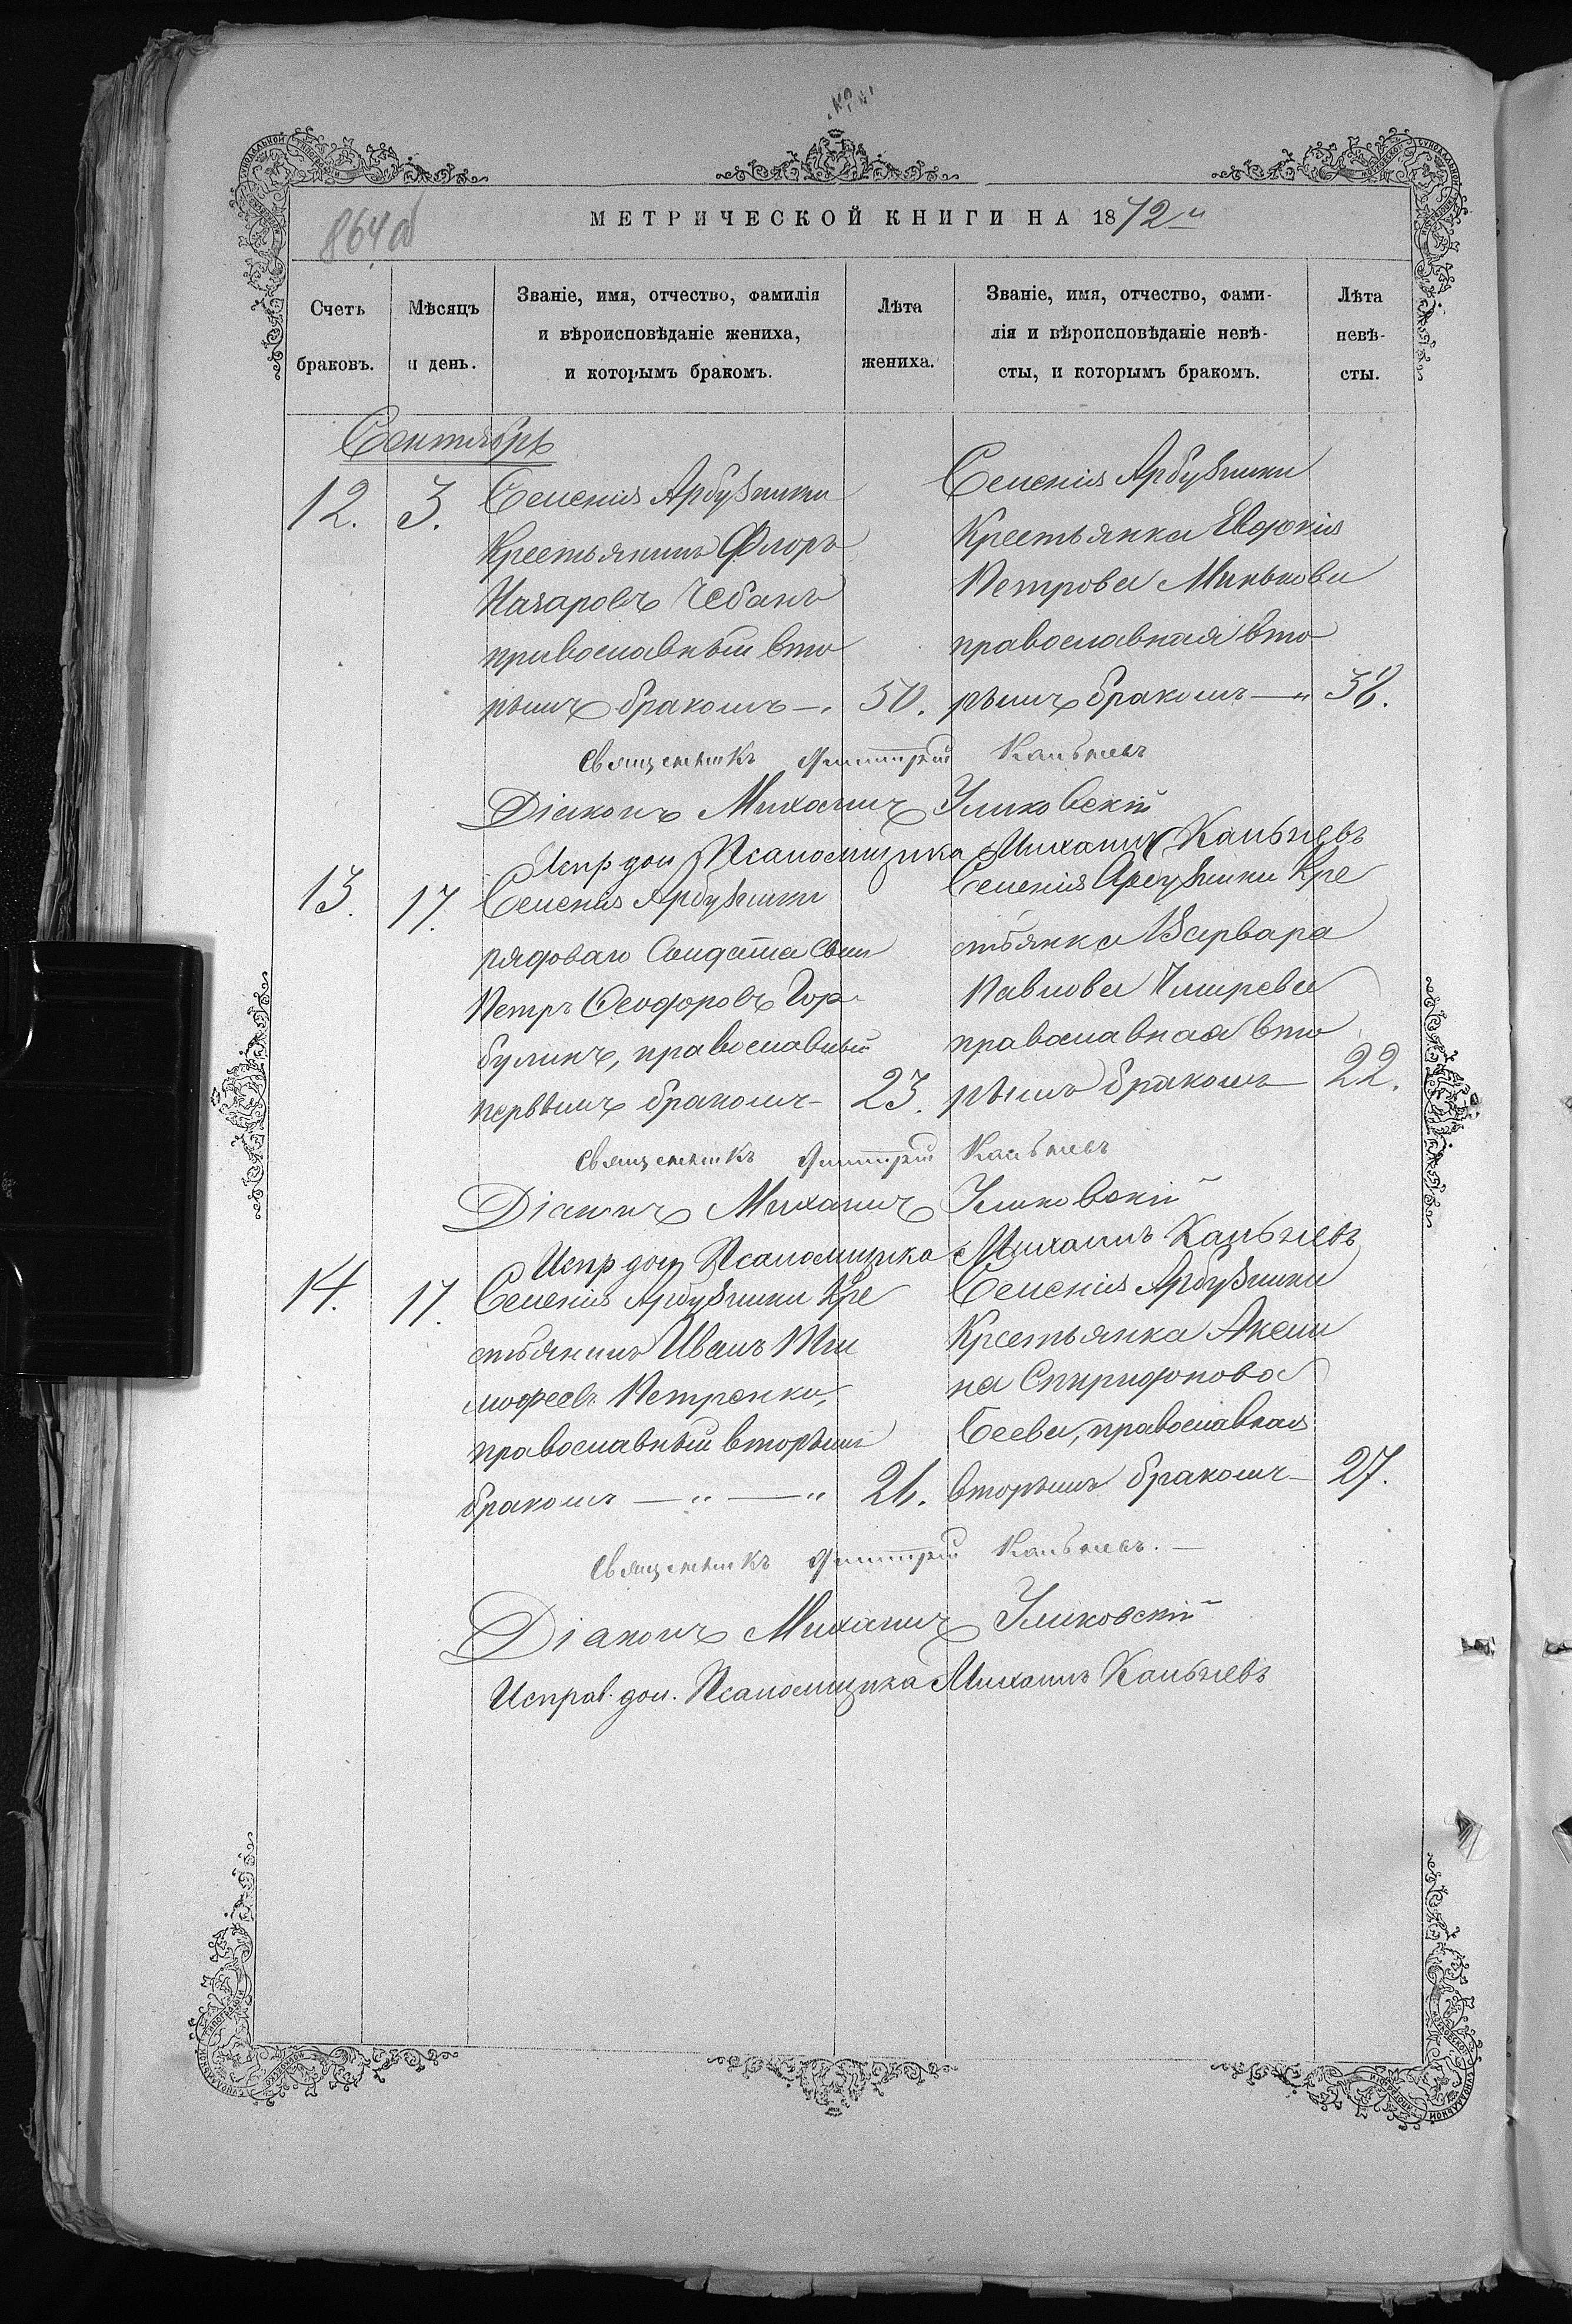 864 об
МЕТРИЧЕСКОЙ КНИГИ НА 1872й
Счетъ браковъ.
Мѣсяцъ и день.
Званіе, имя, отчество, фамилія
и вѣроисповѣданіе жениха,
и которымъ бракомъ.
Лѣта жениха.
Званіе, имя, отчество, фами-
лія и вѣроисповѣданіе невѣ-
сты, и которымъ бракомъ.
Лѣта
невѣ-
сты.
Сентябрь
12. 3. Селенія Арбузинки
Крестьянинъ Флоръ
Назаровъ Чебанъ
православный вто
рымъ бракомъ 50.
Селенія Арбузинки
Крестьянка Евдокія
Петрова Минькова
православная вто
рымъ бракомъ 38.
Священникъ Димитрій
Діаконъ Михаилъ
Испр дол Псаломщика Михаилъ
13. 17. Селенія Арбузинки
рядоваго Солдата Сынъ
Петръ Феодоровъ Гор
булинъ, православный
первымъ бракомъ 23.
Селенія Арбузинки Кре
стьянка Варвара
Павлова
православная вто
рымъ бракомъ 22.
Священникъ Димитрій
Діаконъ Михаилъ
Испр дол Псаломщика Михаилъ
14. 17. Селенія Арбузинки Кре
стьянинъ Иванъ Ти
мофеевъ Петренко,
православный вторымъ
бракомъ 26.
Селенія Арбузинки
Крестьянка Акели
на Спиридонова
православная
вторымъ бракомъ 27.
Священникъ Димитрій
Діаконъ Михаилъ
Исправ. дол. Псаломщика Михаилъ